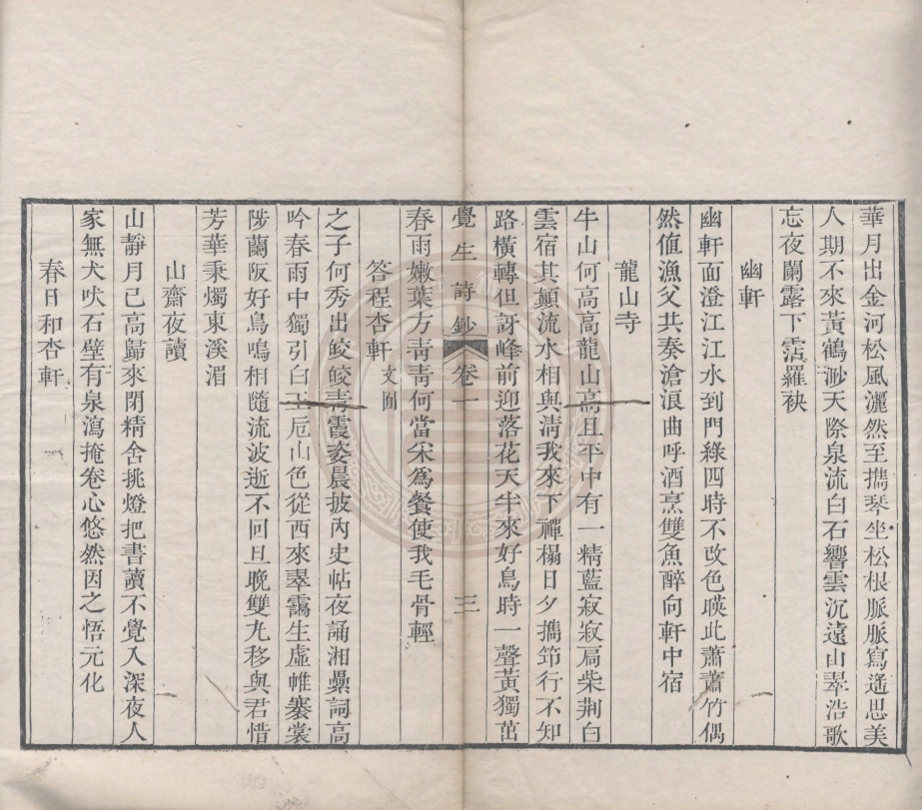 華月出金河松風灑然至攜琴坐松根脈脈寫遙思美
人期不來黃鶴渺天際泉流白石響雲沉遠山翠浩歌
忘夜闌露下霑羅袂
幽軒
幽軒面澄江江水到門綠四時不改色暎此蕭蕭竹偶
然值漁父共奏滄浪曲呼酒烹雙魚醉向軒中宿
龍山寺
牛山何高高龍山高且平中有一精藍寂寂扃柴荆白
雲宿其顛流水相與淸我來下禪榻日夕攜笻行不知
路橫轉但訝峰前迎落花天半來好鳥時一聲黃獨茁
覺生詩鈔 卷一 三
春雨嫩葉方靑靑何當采爲餐使我毛骨輕
答程杏軒文囿
之子何秀出皎皎靑霞姿晨披內史帖夜誦湘纍詞高
吟春雨中獨引白玉卮山色從西來翠靄生虛帷褰裳
陟蘭阪好鳥鳴相隨流波逝不回旦晚雙丸移與君惜
芳華秉燭東溪湄
山齋夜讀
山靜月已高歸來閉精舍挑燈把書讀不覺入深夜人
家無犬吠石壁有泉瀉掩卷心悠然因之悟元化
春日和杏軒